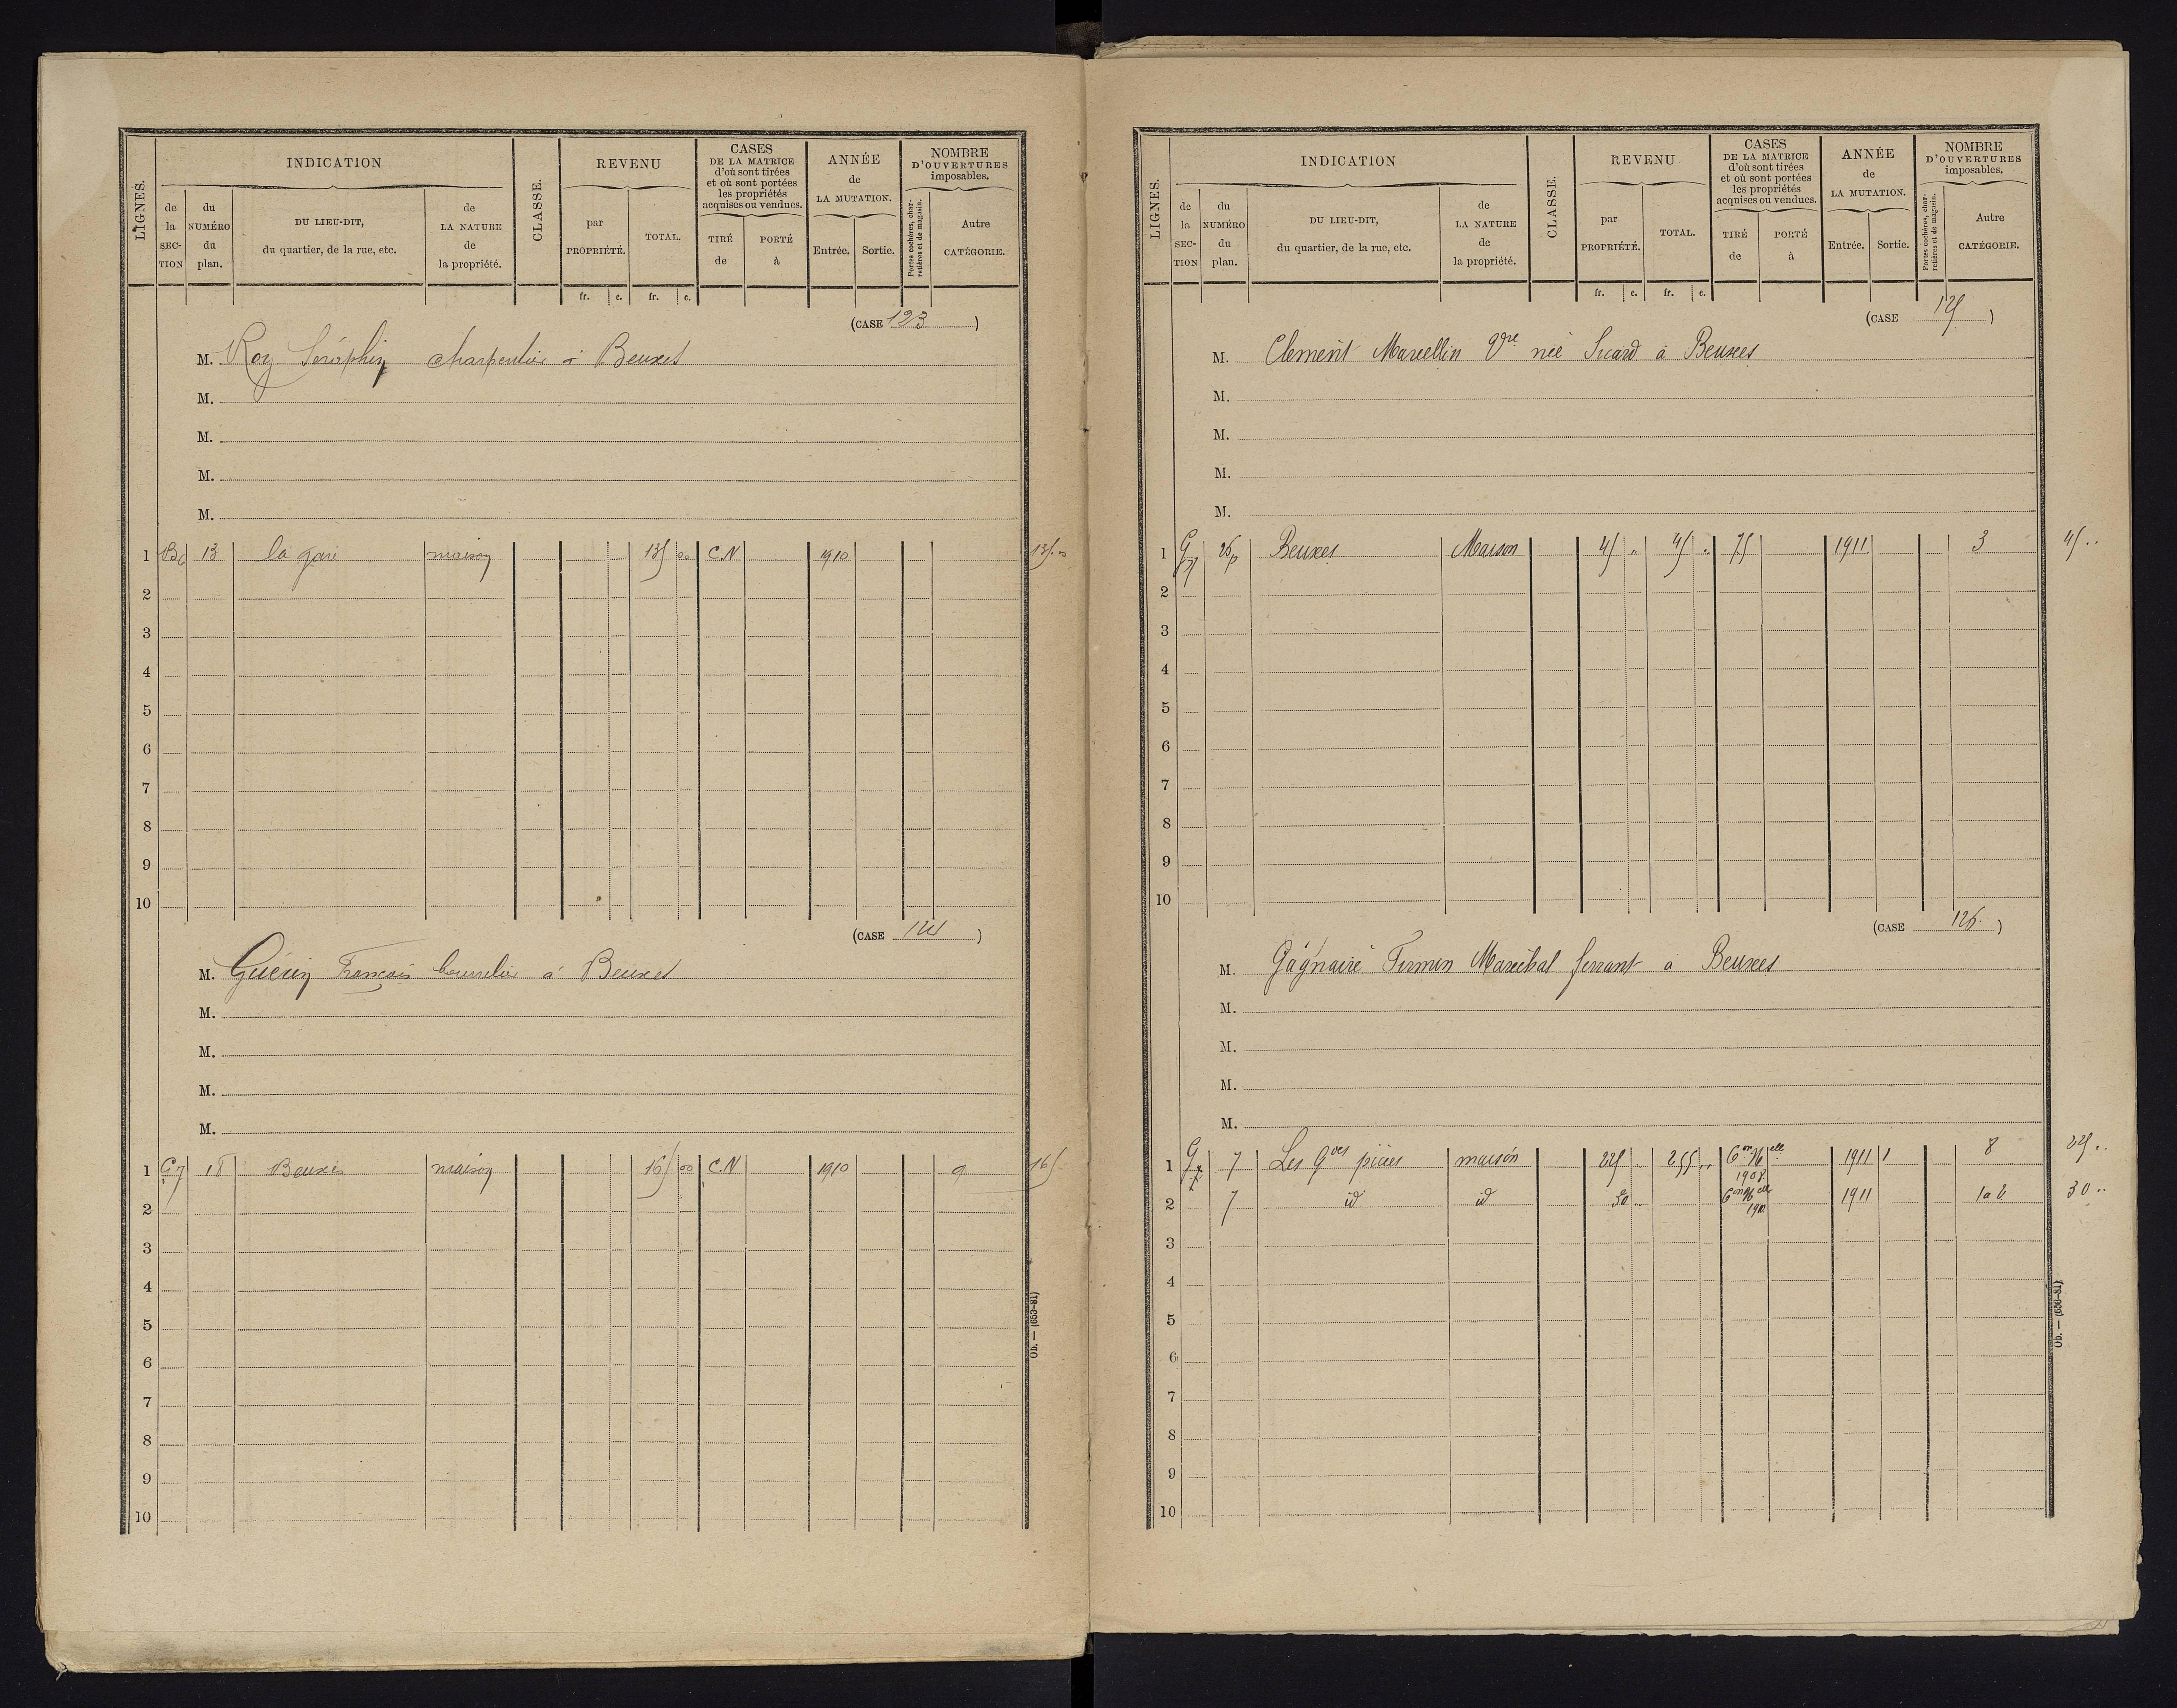 LIGNES.
INDICATION
de la SEC-TION
du NUMÉRO du plan.
DU LIEU-DIT, du quartier, de la rue, etc.
de LA NATURE de la propriété.
CLASSE.
REVENU
par PROPRIÉTÉ.
TOTAL.
CASES DE LA MATRICE d'où sont tirées et où sont portées les propriétés acquises ou vendues.
TIRÉ de
PORTÉ à
ANNÉE de LA MUTATION.
Entrée.
Sortie.
NOMBRE D'OUVERTURES imposables.
Portes cochères, charretières et de magasin.
Autre CATÉGORIE.
fr. c. fr. c.
(CASE 123 )
M. Roy Séraphin charpentier à Beuxes
M.
M.
M.
M.
1 13 la gare maison 135 00 C.N 1910 135.00
2
3
4
5
6
7
8
9
10
(CASE 124 )
M. Guérin François bourrelier à Beuxes
M.
M.
M.
M.
1 G7 18 Beuxes maison 165 00 C.N 1910 9 165
2
3
4
5
6
7
8
9
10
Ob. — (653-81)
LIGNES.
INDICATION
de la SEC-TION
du NUMÉRO du plan.
DU LIEU-DIT, du quartier, de la rue, etc.
de LA NATURE de la propriété.
CLASSE.
REVENU
par PROPRIÉTÉ.
TOTAL.
CASES DE LA MATRICE d'où sont tirées et où sont portées les propriétés acquises ou vendues.
TIRÉ de
PORTÉ à
ANNÉE de LA MUTATION.
Entrée.
Sortie.
NOMBRE D'OUVERTURES imposables.
Portes cochères, charretières et de magasin.
Autre CATÉGORIE.
fr. c. fr. c.
(CASE 125 )
M. Clement Marcellin Vve née Sicard à Beuxes
M.
M.
M.
M.
1 G 26p Beuxes Maison 45 .. 45 .. 75 1911 3 45 ..
2
3
4
5
6
7
8
9
10
(CASE 126. )
M. Gagnaire Firmin Maréchal ferrant à Beuxes
M.
M.
M.
M.
1 G 7 Les Gdes pièces maison 225 .. 255 .. Con Nelle 1908 1911 1 8 225 ..
2 7 id id 30 .. Con Nelle 1911 30 ..
3
4
5
6
7
8
9
10